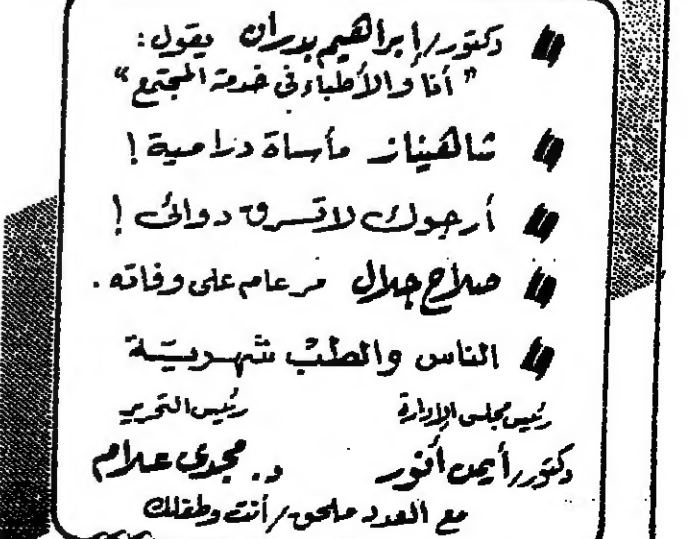 دكتور/إبراهيم بدران يقول:
"أنا والأطباء فى خدمة المجتمع"
شاهيناز مأساة درامية!
أرجوك لا تسرق دوائى!
صلاح جلال مر عام على وفاته.
الناس والطب شهرية
رئيس مجلس الإدارة رئيس التحرير
دكتور/أيمن أنور د. مجدى علام
مع العدد ملحق/أنت وطفلك